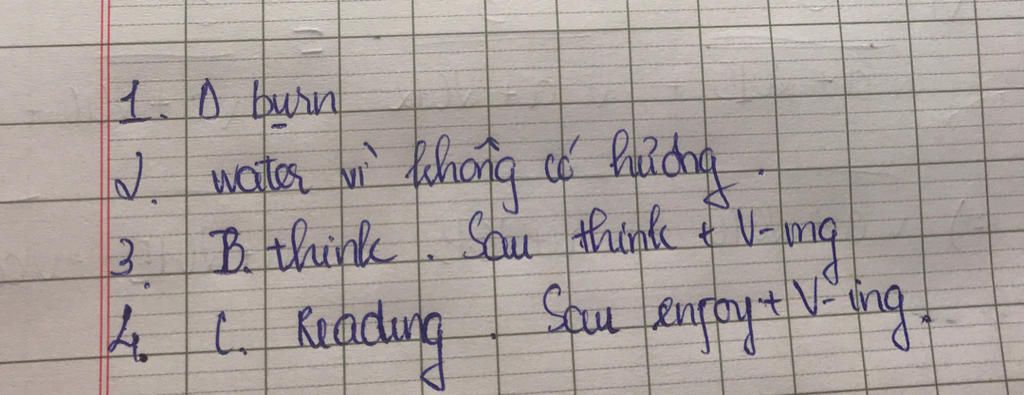 1. D burn
2. water vì không có hướng.
3. B. think. Sau think + V-ing
4. C. Reading. Sau enjoy + V-ing.